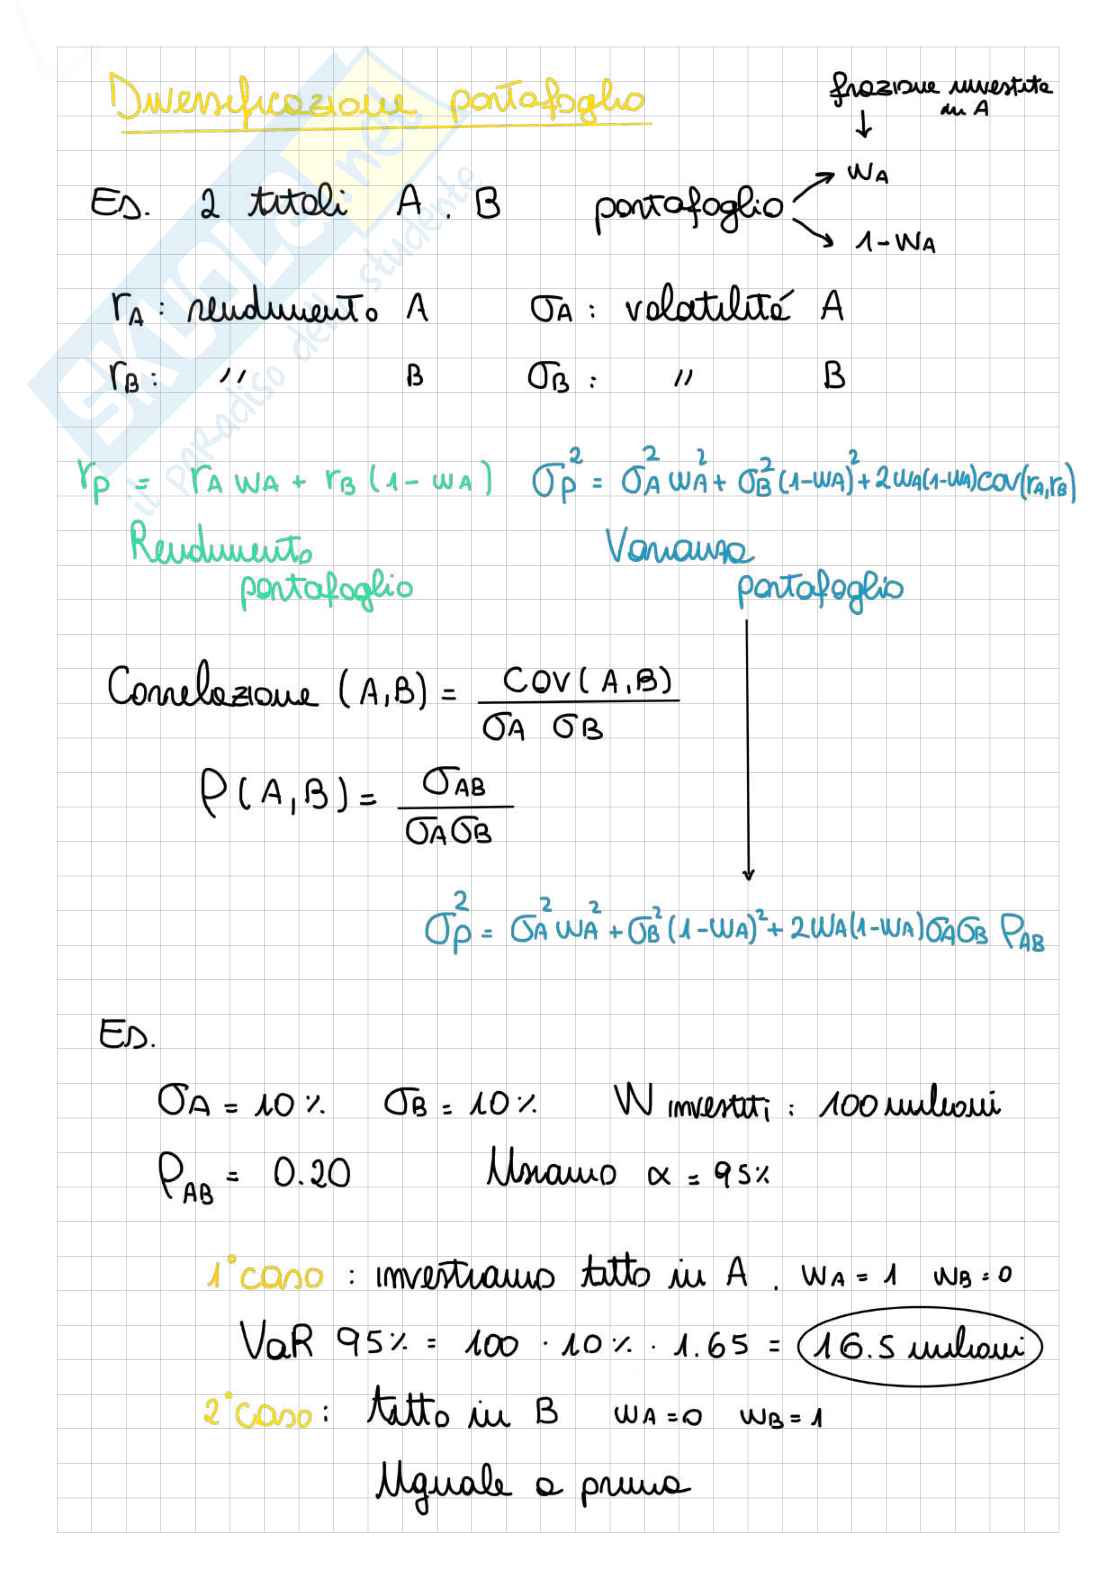 Diversificazione portafoglio
frazione investita
in A
↓
ES. 2 titoli A, B portafoglio
wA
1-wA
rA: rendimento A σA: volatilitá A
rB: " B σB: " B
rp = rA wA + rB (1- wA) σp² = σA² wA² + σB² (1-wA)² + 2wA(1-wA)cov(rA,rB)
Rendimento
portafoglio
Varianza
portafoglio
Correlazione (A,B) = COV(A,B) / σA σB
ρ(A,B) = σAB / σAσB
σp² = σA² wA² + σB² (1-wA)² + 2wA(1-wA)σAσB ρAB
ES.
σA = 10% σB = 10% W investiti: 100 milioni
ρAB = 0.20 Usiamo α = 95%
1° caso: investiamo tutto in A. wA = 1 wB = 0
VaR 95% = 100 · 10% · 1.65 = 16.5 milioni
2° caso: tutto in B wA = 0 wB = 1
Uguale a prima
SKUOLA.net
il paradiso dello studente